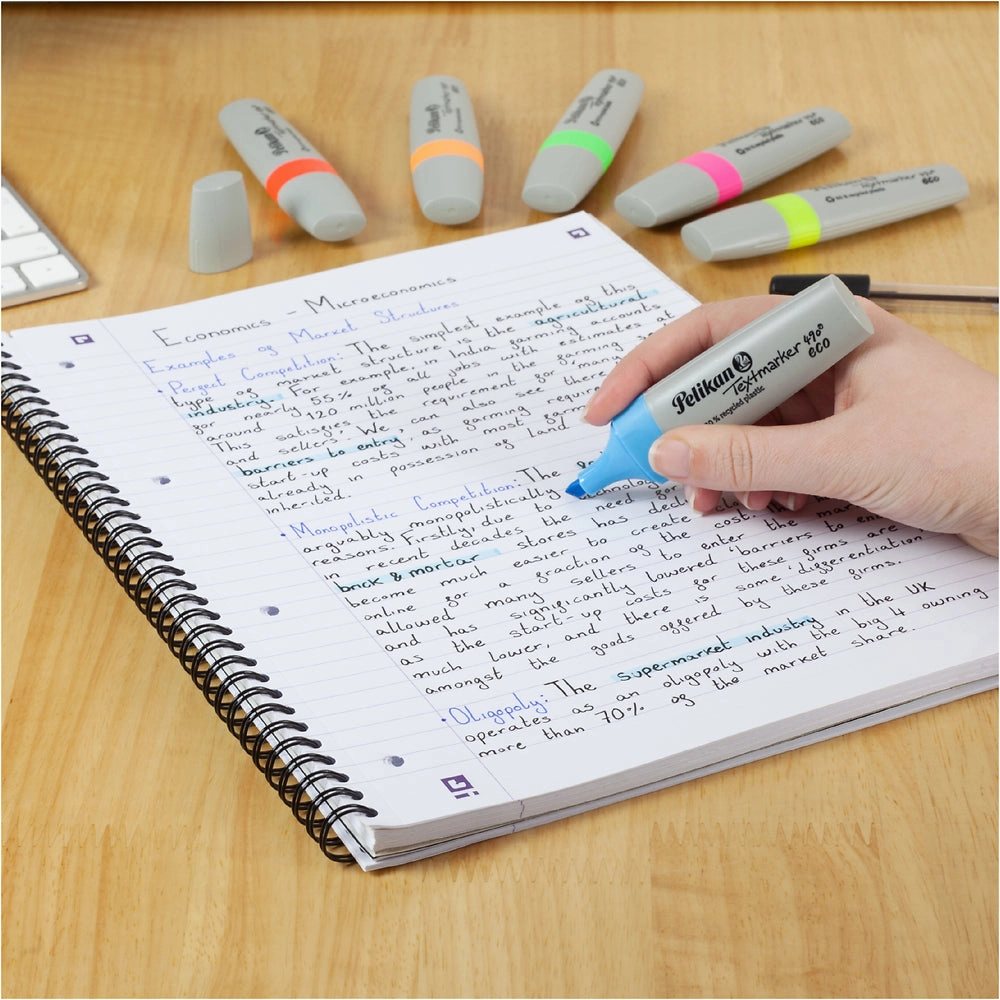 Pelikan
Textmarker 490
eco
Pelikan
Pelikan
Textmarker
eco
Pelikan
Textmarker 490
eco
Economics - Microeconomics
Examples of Market Structures
• Perfect Competition: The simplest example of this
type of market structure is the agricultural
industry. For example. India farming accounts
for nearly 55% of all jobs with estimates of
around 120 million people in the farming
This satisfies the requirement for many
and sellers. We can also see there
barriers to entry, as farming requires
start-up costs with most farmers
already in possession of land
inherited.
• Monopolistic Competition: The
arguably monopolistically
reasons. Firstly, due to technology
in recent decades the need for
brick & mortar stores has
become much easier to create
online for a fraction of the cost.
allowed many sellers to enter the
and has significantly lowered 'barriers to
as the start-up costs for these firms are
much lower, and there is some differentiation
amongst the goods offered by these firms.
• Oligopoly: The supermarket industry in the UK
operates as an oligopoly with the big 4 owning
more than 70% of the market share.
Pelikan
Textmarker 490
eco
% recycled plastic